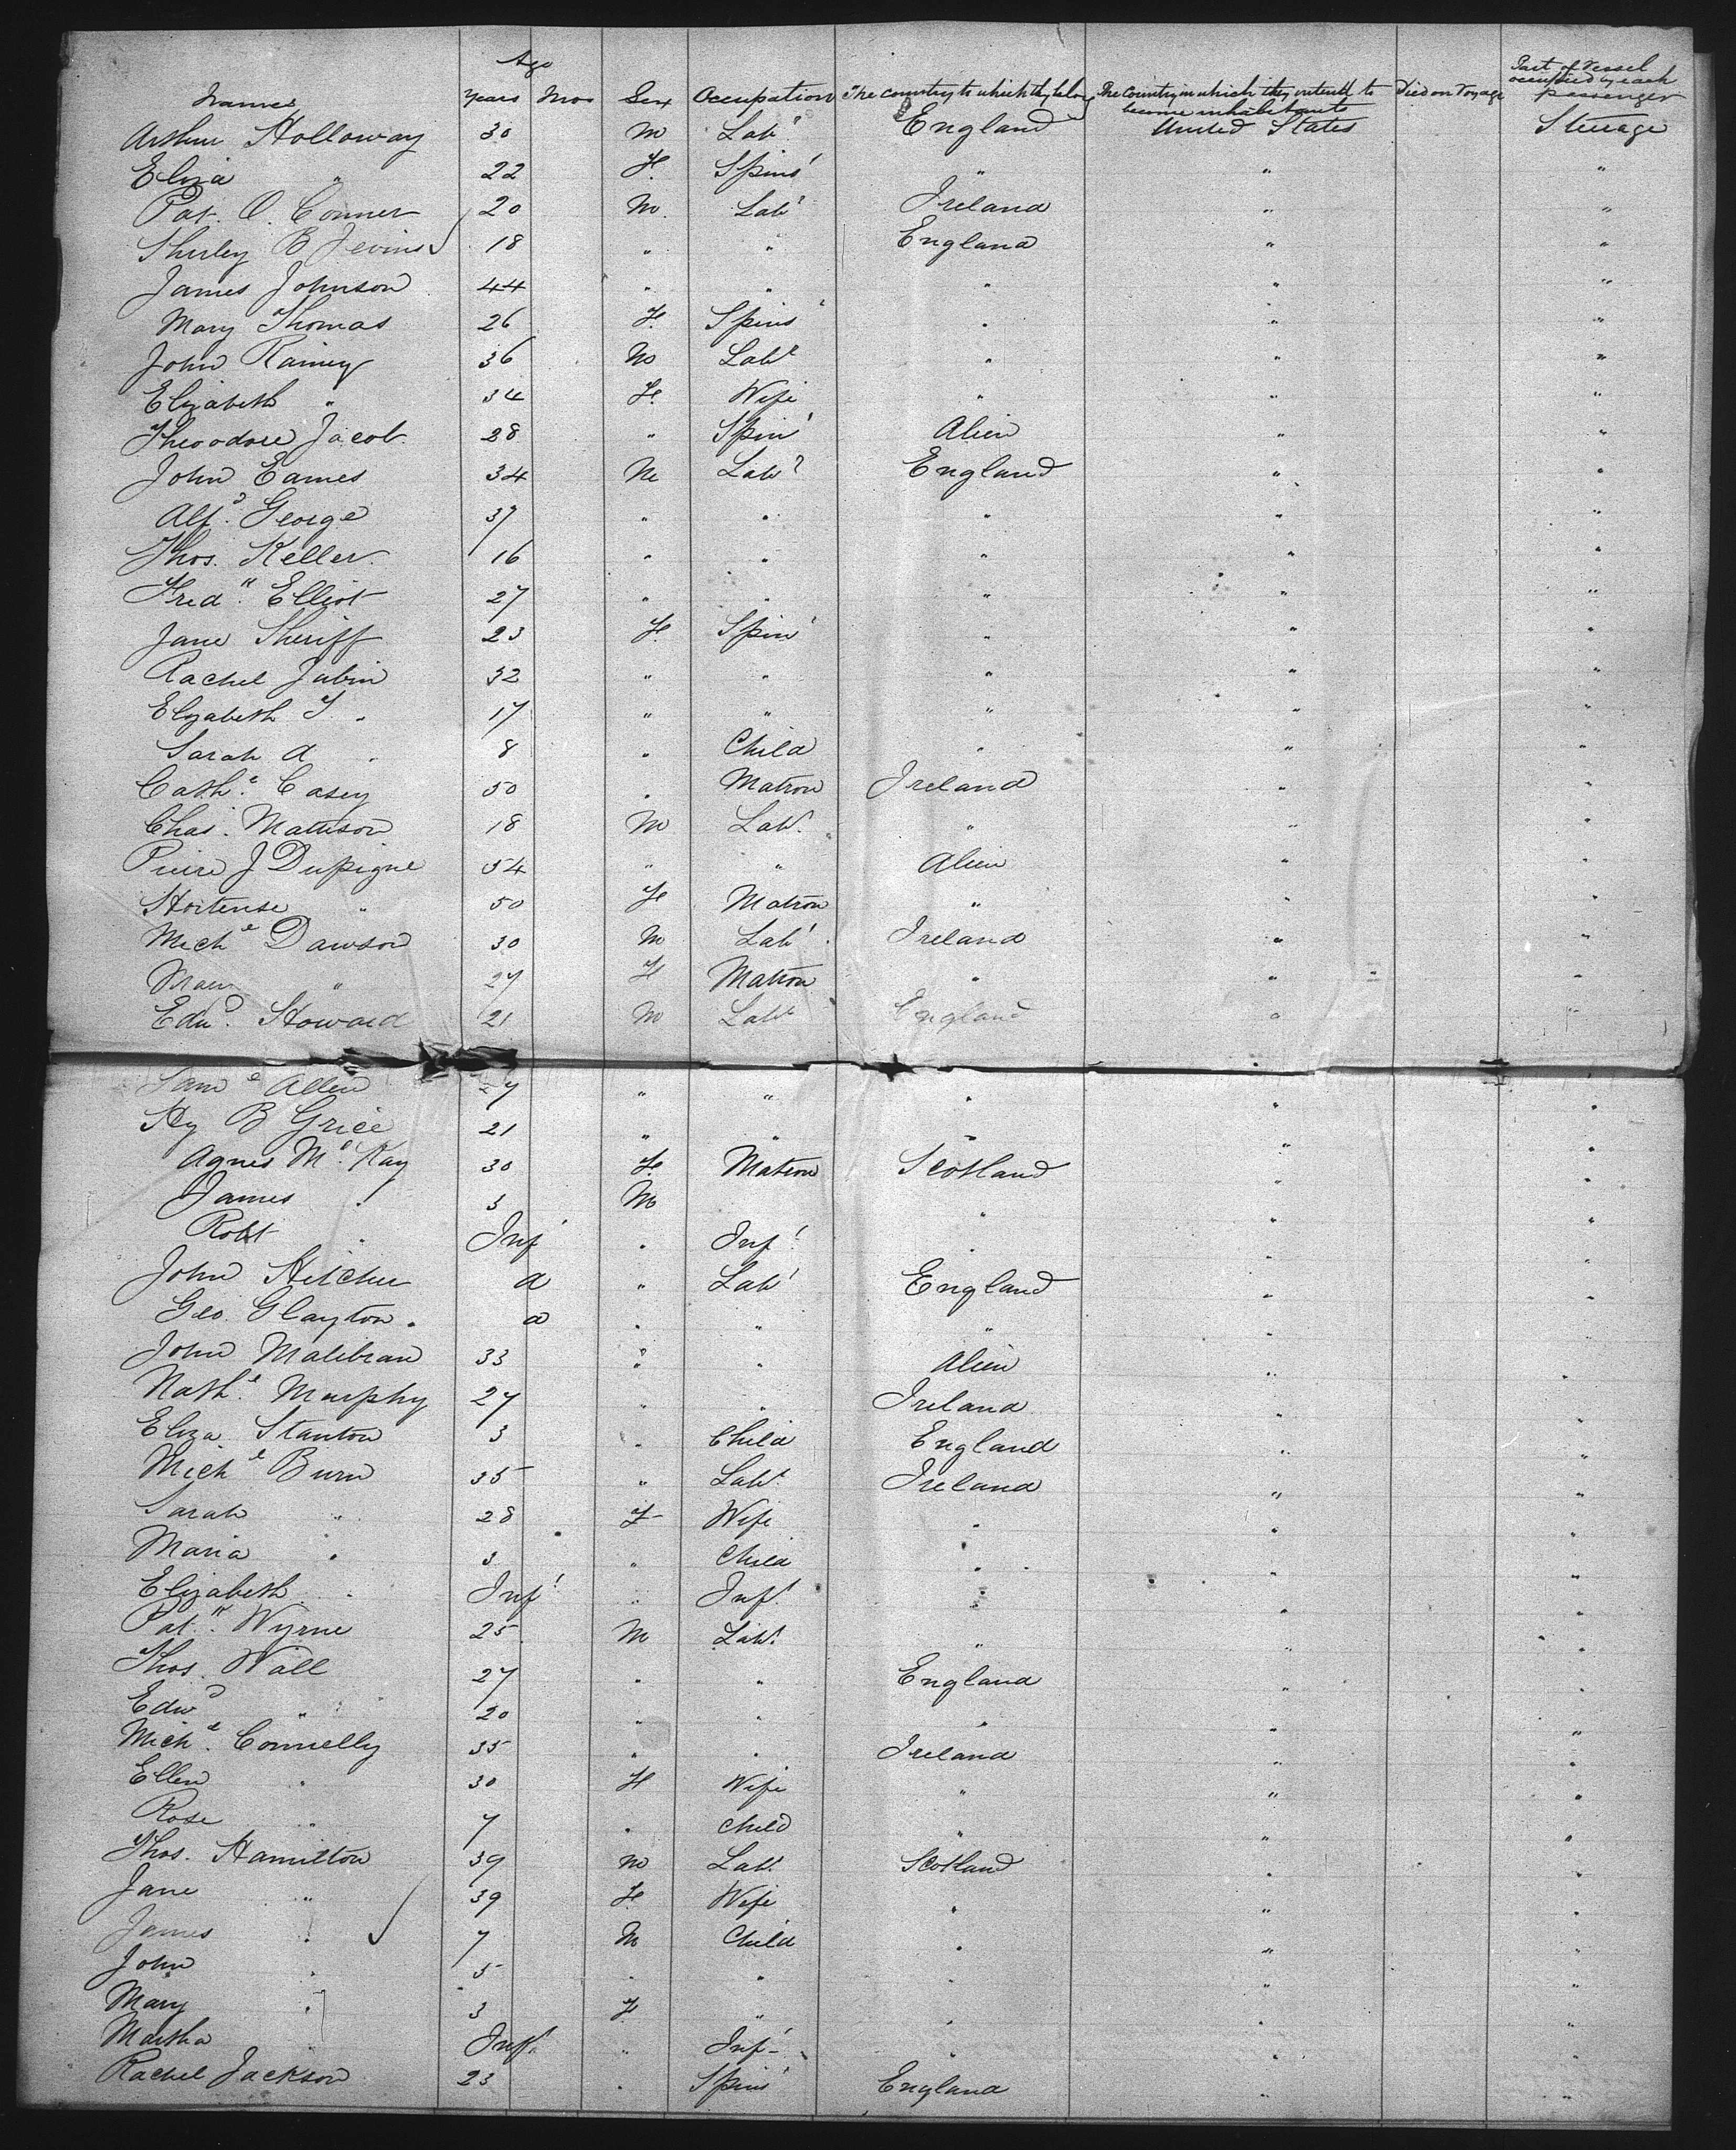 Names Age Years Mos Sex Occupation The country to which they belong The Country in which they intend to become inhabitants Died on Voyage Part of Vessel occupied by each passenger
Arthur Holloway 30 M Labr England United States Steerage
Eliza " 22 F. Spinsr " " "
Pat. O. Conner 20 M. Labr Ireland " "
Shirley B Jevins 18 " " England " "
James Johnson 44 " " " " "
Mary Thomas 26 F. Spinsr " " "
John Rainey 36 M Labr " " "
Elizabeth " 34 F. Wife " " "
Theodore Jacob 28 " Spinr Alien " "
John Eames 34 M Labr England " "
Alfd. George 37 " " " " "
Thos. Keller 16 " " " " "
Fredk. Elliot 27 " " " " "
Jane Sheriff 23 F. Spinr " " "
Rachel Jubin 32 " " " " "
Elizabeth J. " 17 " " " " "
Sarah A " 8 " Child " " "
Cathe. Casey 50 " Matron Ireland " "
Chas. Mattison 18 M Labr. " " "
Pierre J Dupigne 54 " " Alien " "
Hortense " 50 F Matron " " "
Michl Dawson 30 M Labr Ireland " "
Mary " 27 F Matron " " "
Edwd. Howard 21 M Labr England " "
Saml Allen 27 " " " " "
Hy B Grice 21 " " " " "
Agnes Mc. Kay 30 F. Matron Scotland " "
James " 3 M " " "
Robt " Inft " Inft " " "
John Hitcher a " Labr England " "
Geo. Clayton a " " " " "
John Malibran 33 " " Alien " "
Nathl. Murphy 27 " " Ireland " "
Eliza Stanton 3 " Child England " "
Michl Burn 35 " Labr Ireland " "
Sarah " 28 F Wife " " "
Maria " 3 " Child " " "
Elizabeth " Inft " Inft " " "
Patk. Wyrne 25 M Labr. " " "
Thos. Wall 27 " " England " "
Edwd " 20 " " " " "
Michl. Connelly 35 " " Ireland " "
Ellen " 30 F Wife " " "
Rose " 7 " Child " " "
Thos. Hamilton 39 M Labr. Scotland " "
Jane " 39 F. Wife " " "
James " 7 M Child " " "
John " 5 " " " " "
Mary " 3 F " " " "
Martha " Inft. " Inft " " "
Rachel Jackson 23 " Spinsr England " "